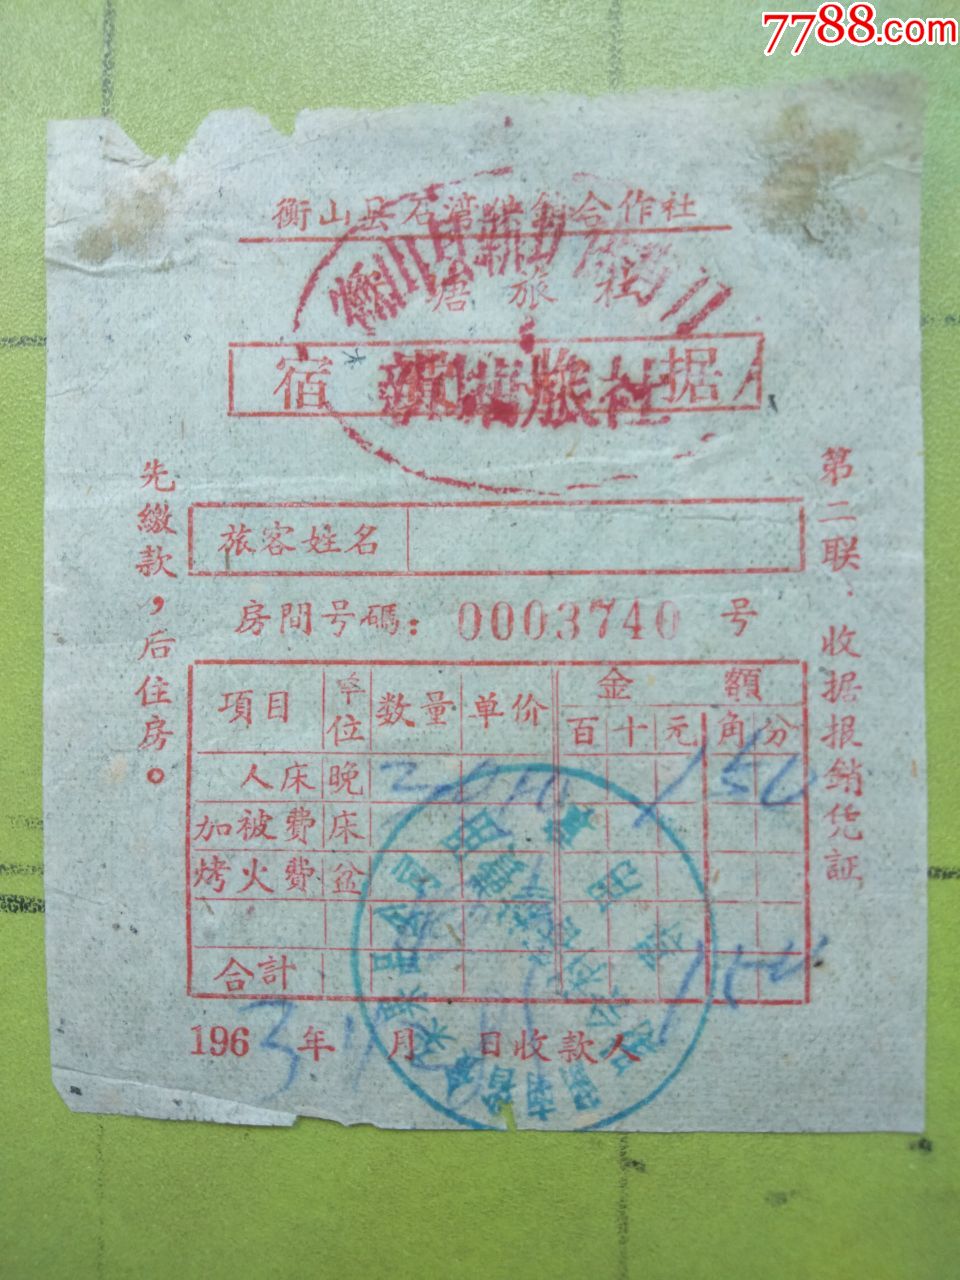 7788.com
衡山县石湾供销合作社
塘旅社
宿 据
新塘旅社
先缴款，后住房。
第二联：收据报销凭証
旅客姓名
房間号碼： 0003740 号
項目 单位 数量 单价 金額
百 十 元 角 分
人床 晚 150
加被費 床
烤火費 盆
合計
1963年 月 日收款人